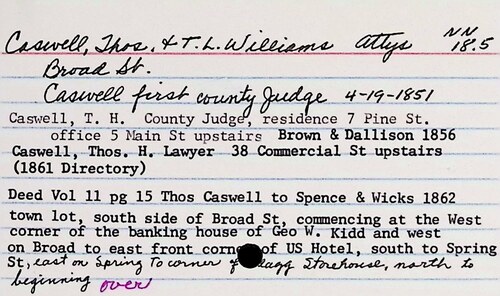 Caswell, Thos. & T. L. Williams Attys NN
18.5
Broad St.
Caswell first county Judge 4-19-1851
Caswell, T. H. County Judge, residence 7 Pine St.
office 5 Main St upstairs Brown & Dallison 1856
Caswell, Thos. H. Lawyer 38 Commercial St upstairs
(1861 Directory)
Deed Vol 11 pg 15 Thos Caswell to Spence & Wicks 1862
town lot, south side of Broad St, commencing at the West
corner of the banking house of Geo W. Kidd and west
on Broad to east front corner of US Hotel, south to Spring
St, east on Spring to corner of Storehouse, north to
beginning over